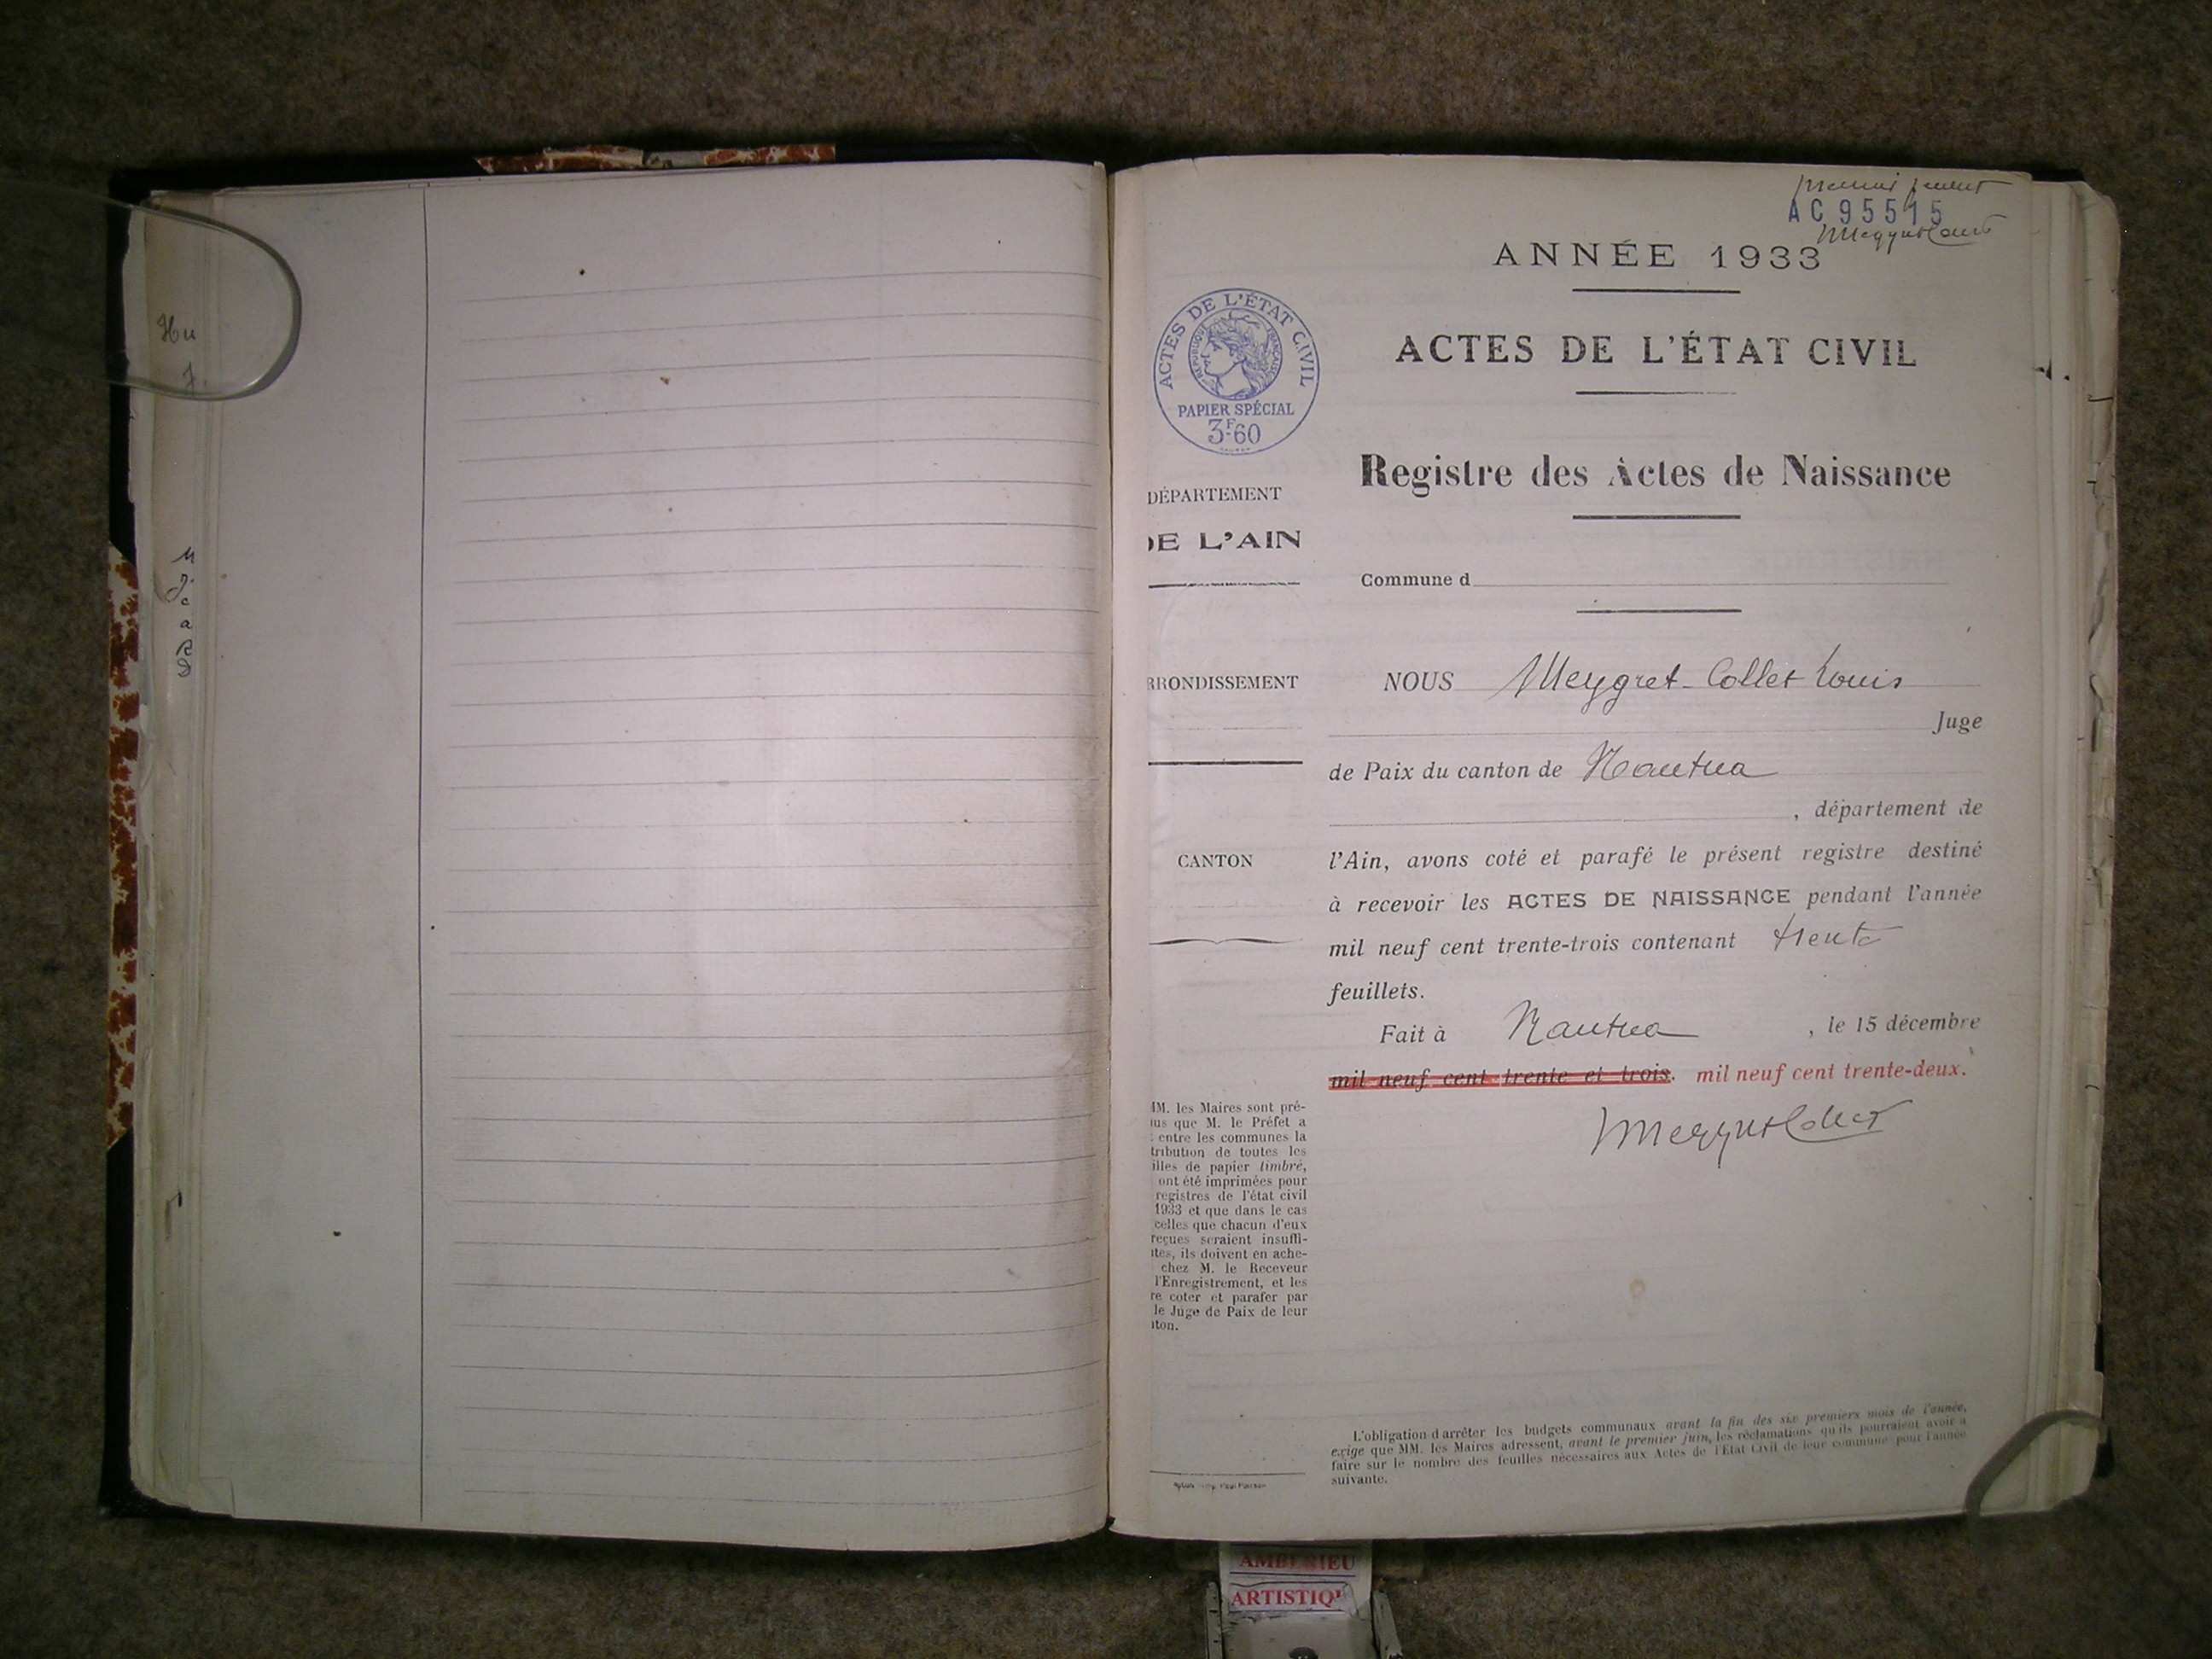 Hu
J.
premier feuillet
AC 95515
ANNÉE 1933
ACTES DE L'ÉTAT CIVIL
RÉPUBLIQUE FRANÇAISE
PAPIER SPÉCIAL
3F60
ACTES DE L'ÉTAT CIVIL
Registre des Actes de Naissance
DÉPARTEMENT
DE L'AIN
Commune d
RRONDISSEMENT
NOUS Meygret-Collet Louis
Juge
de Paix du canton de Nantua
, département de
CANTON
l'Ain, avons coté et parafé le présent registre destiné
à recevoir les ACTES DE NAISSANCE pendant l'année
mil neuf cent trente-trois contenant trente
feuillets.
Fait à Nantua , le 15 décembre
mil neuf cent trente et trois. mil neuf cent trente-deux.
MeygretCollet
IM. les Maires sont pré-
us que M. le Préfet a
entre les communes la
tribution de toutes les
illes de papier timbré,
ont été imprimées pour
registres de l'état civil
1933 et que dans le cas
celles que chacun d'eux
reçues seraient insuffi-
ites, ils doivent en ache-
chez M. le Receveur
l'Enregistrement, et les
re coter et parafer par
le Juge de Paix de leur
iton.
L'obligation d'arrêter les budgets communaux avant la fin des six premiers mois de l'année,
exige que MM. les Maires adressent, avant le premier juin, les réclamations qu'ils pourraient avoir à
faire sur le nombre des feuilles nécessaires aux Actes de l'État Civil de leur commune pour l'année
suivante.
AMBERIEU
ARTISTIQU